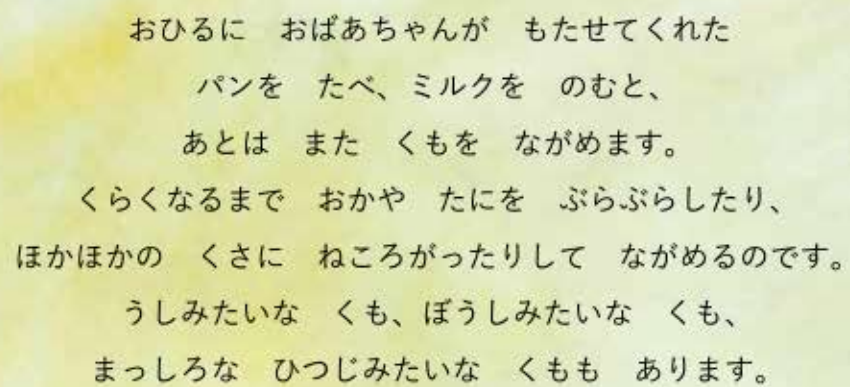 おひるに　おばあちゃんが　もたせてくれた
パンを　たべ、ミルクを　のむと、
あとは　また　くもを　ながめます。
くらくなるまで　おかや　たにを　ぶらぶらしたり、
ほかほかの　くさに　ねころがったりして　ながめるのです。
うしみたいな　くも、ぼうしみたいな　くも、
まっしろな　ひつじみたいな　くもも　あります。